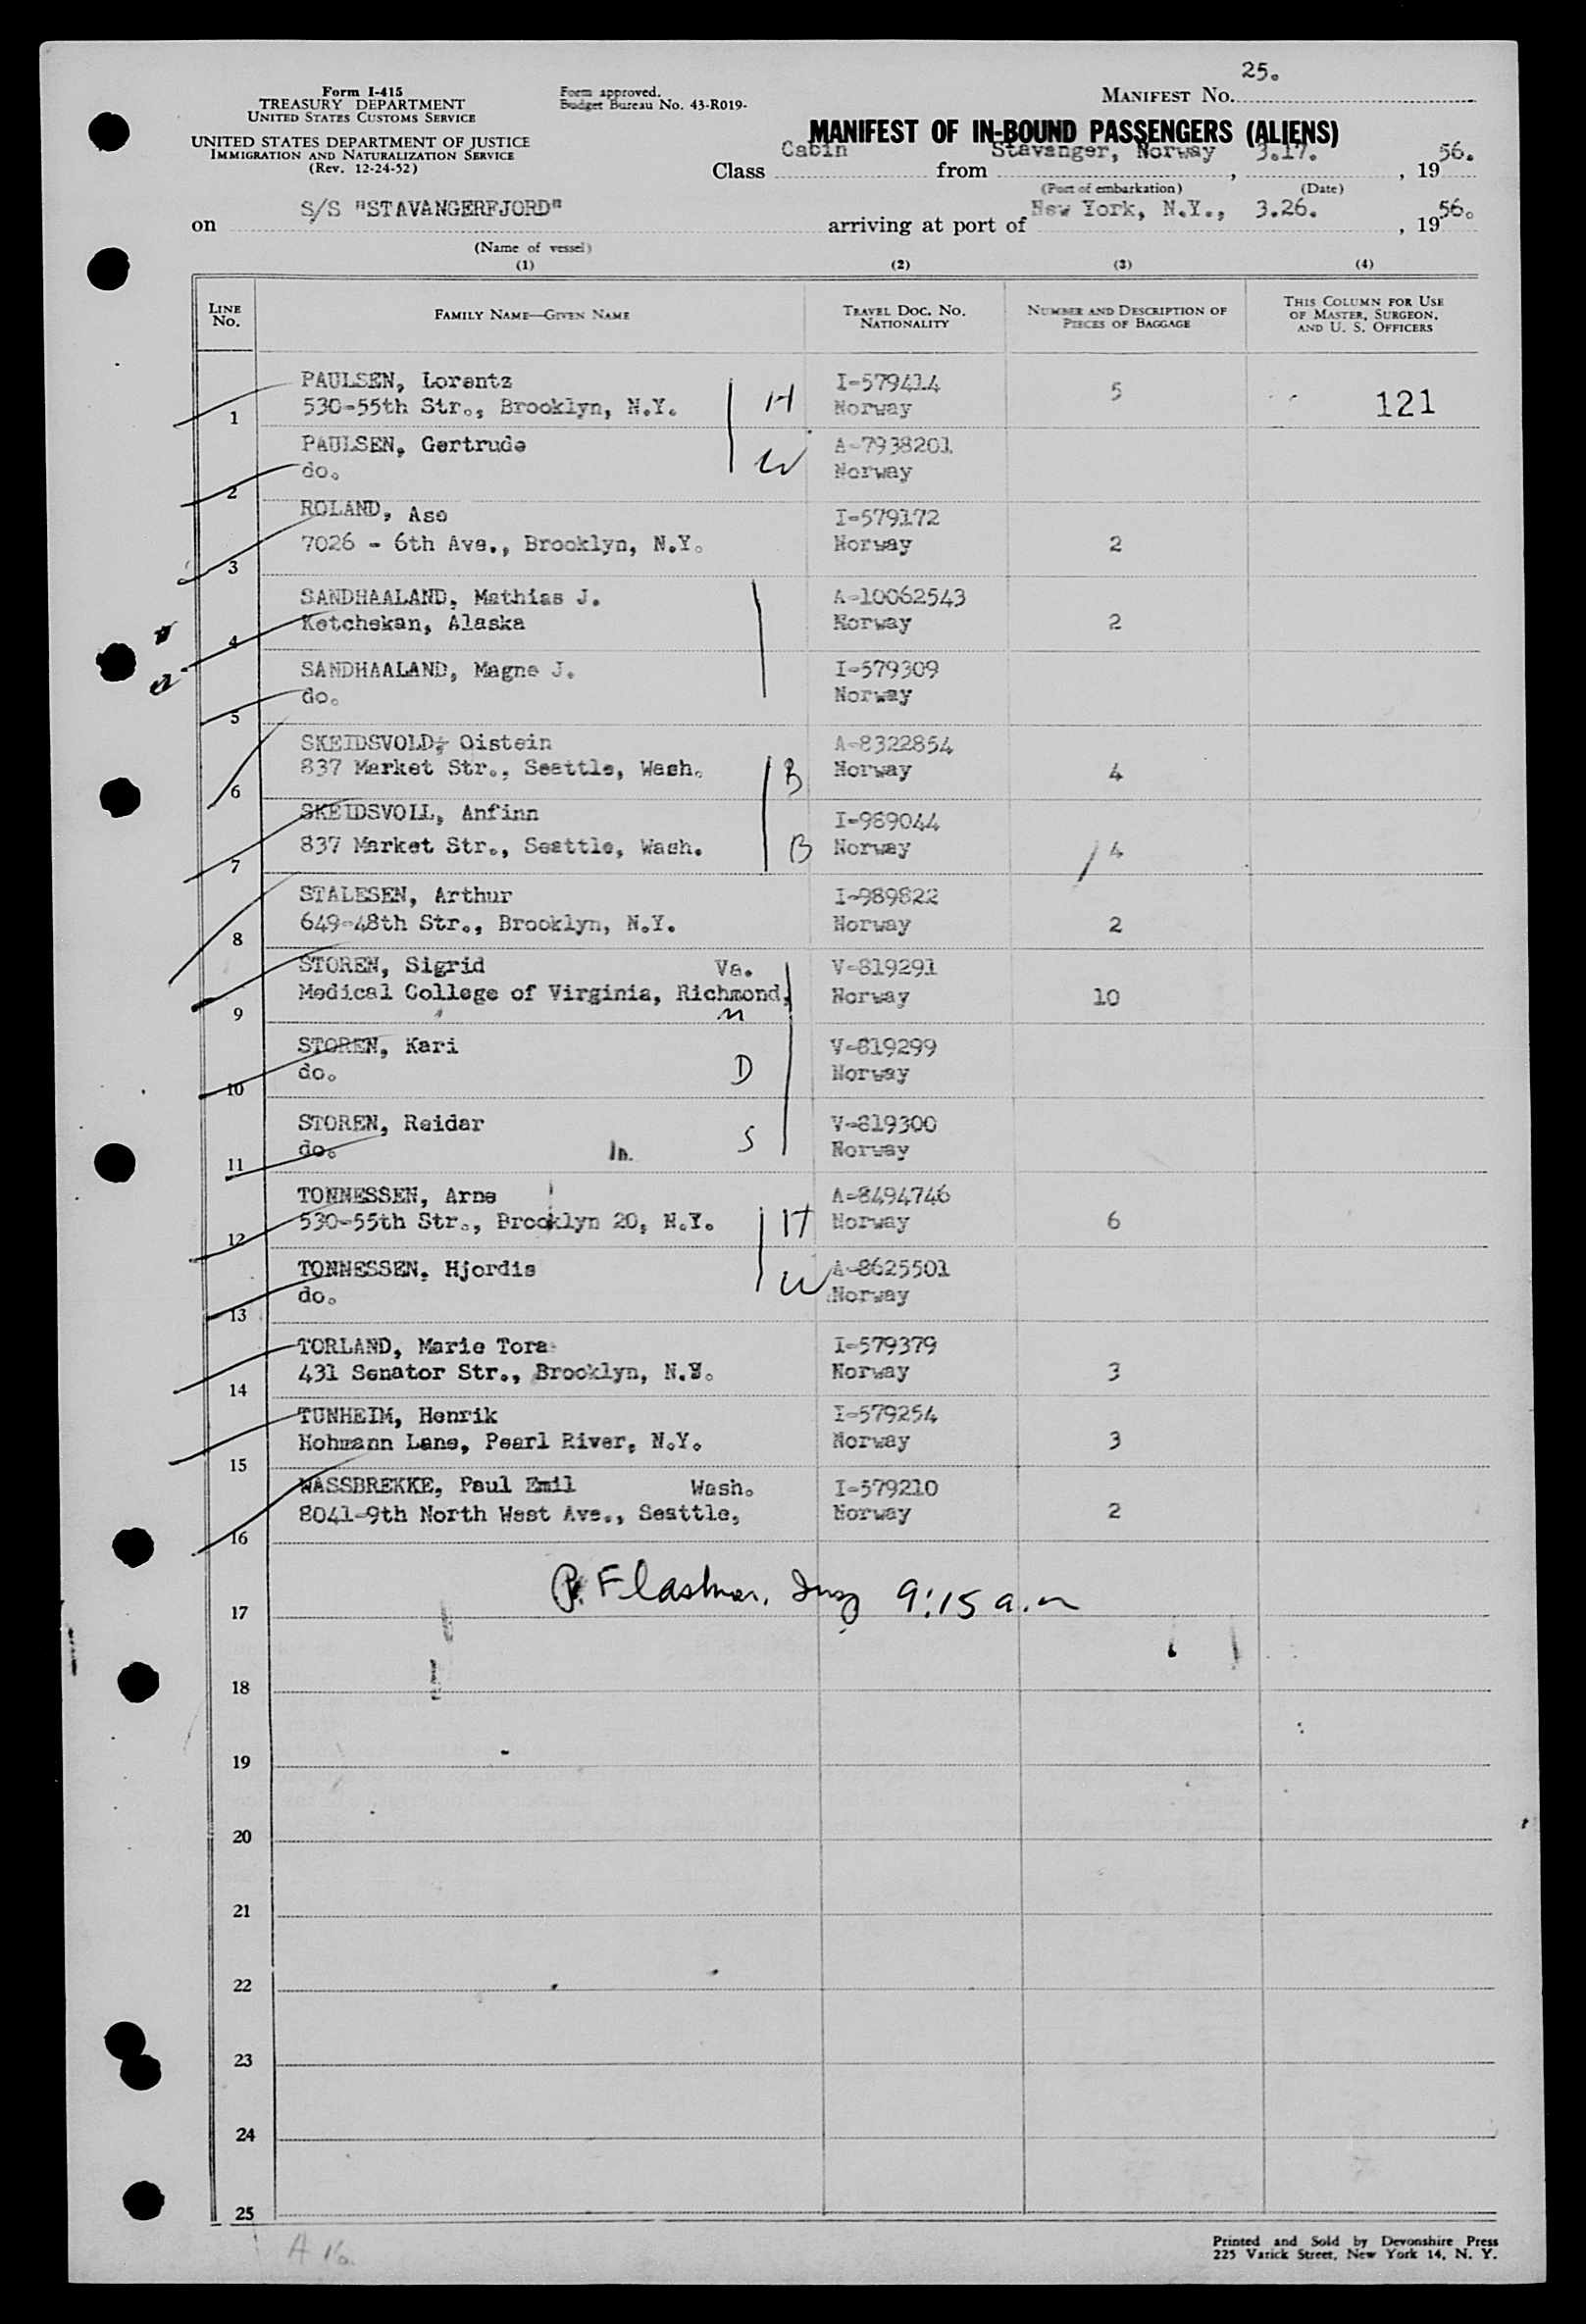 25.
Form I-415
TREASURY DEPARTMENT
UNITED STATES CUSTOMS SERVICE
Form approved.
Budget Bureau No. 43-R019-
MANIFEST NO.
UNITED STATES DEPARTMENT OF JUSTICE
IMMIGRATION AND NATURALIZATION SERVICE
(Rev. 12-24-52)
MANIFEST OF IN-BOUND PASSENGERS (ALIENS)
Class Cabin from Stavanger, Norway, 3.17., 1956.
(Port of embarkation) (Date)
on S/S "STAVANGERFJORD" arriving at port of New York, N.Y., 3.26., 1956.
(Name of vessel)
(1) (2) (3) (4)
LINE NO. FAMILY NAME—GIVEN NAME TRAVEL DOC. NO. NATIONALITY NUMBER AND DESCRIPTION OF PIECES OF BAGGAGE THIS COLUMN FOR USE OF MASTER, SURGEON, AND U. S. OFFICERS
PAULSEN, Lorentz I-579414 5
1 530-55th Str., Brooklyn, N.Y. H Norway 121
PAULSEN, Gertrude A-7938201
2 do. W Norway
ROLAND, Ase I-579172
3 7026 - 6th Ave., Brooklyn, N.Y. Norway 2
SANDHAALAND, Mathias J. A-10062543
4 Ketchekan, Alaska Norway 2
SANDHAALAND, Magne J. I-579309
5 do. Norway
SKEIDSVOLD, Oistein A-8322854
6 837 Market Str., Seattle, Wash. B Norway 4
SKEIDSVOLL, Anfinn I-989044
7 837 Market Str., Seattle, Wash. B Norway 4
STALESEN, Arthur I-989822
8 649-48th Str., Brooklyn, N.Y. Norway 2
STOREN, Sigrid Va. V-819291
9 Medical College of Virginia, Richmond, M Norway 10
STOREN, Kari V-819299
10 do. D Norway
STOREN, Reidar V-819300
11 do. S Norway
TONNESSEN, Arne A-8494746
12 530-55th Str., Brooklyn 20, N.Y. H Norway 6
TONNESSEN, Hjordis A-8625501
13 do. W Norway
TORLAND, Marie Tora I-579379
14 431 Senator Str., Brooklyn, N.Y. Norway 3
TUNHEIM, Henrik I-579254
15 Hohmann Lane, Pearl River, N.Y. Norway 3
WASSBREKKE, Paul Emil Wash. I-579210
16 8041-9th North West Ave., Seattle, Norway 2
9:15 a.m
17
18
19
20
21
22
23
24
25
Printed and Sold by Devonshire Press
225 Varick Street, New York 14, N. Y.